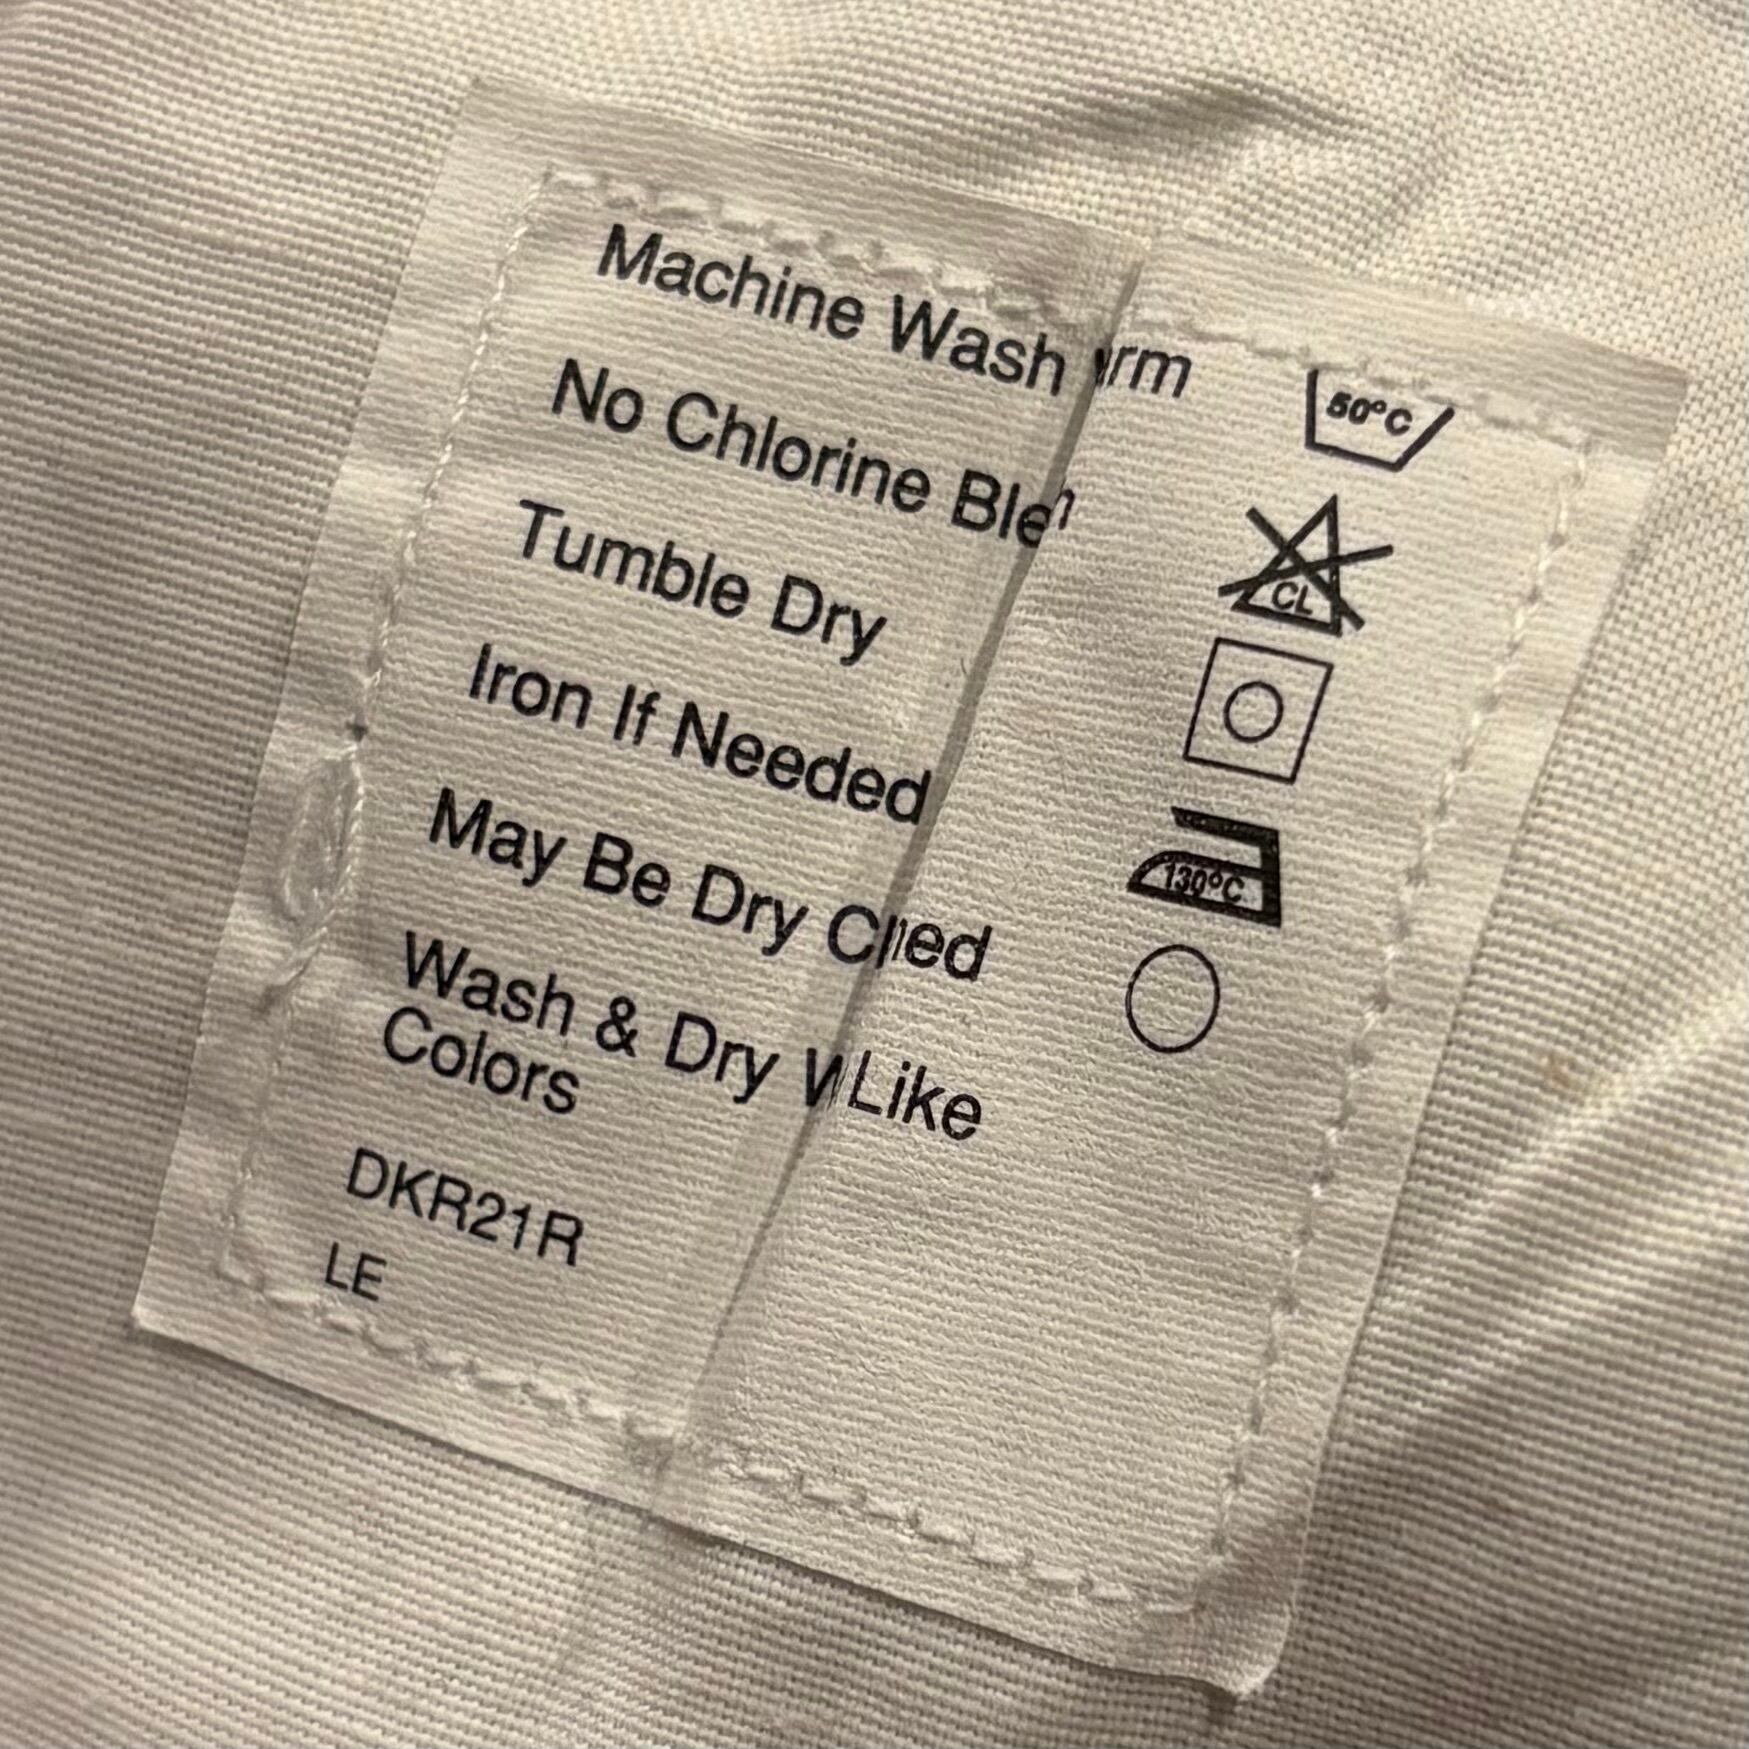 Machine Wash rm 50°C
No Chlorine Ble
CL
Tumble Dry
Iron If Needed
130°C
May Be Dry Cl ed
Wash & Dry W Like
Colors
DKR21R
LE